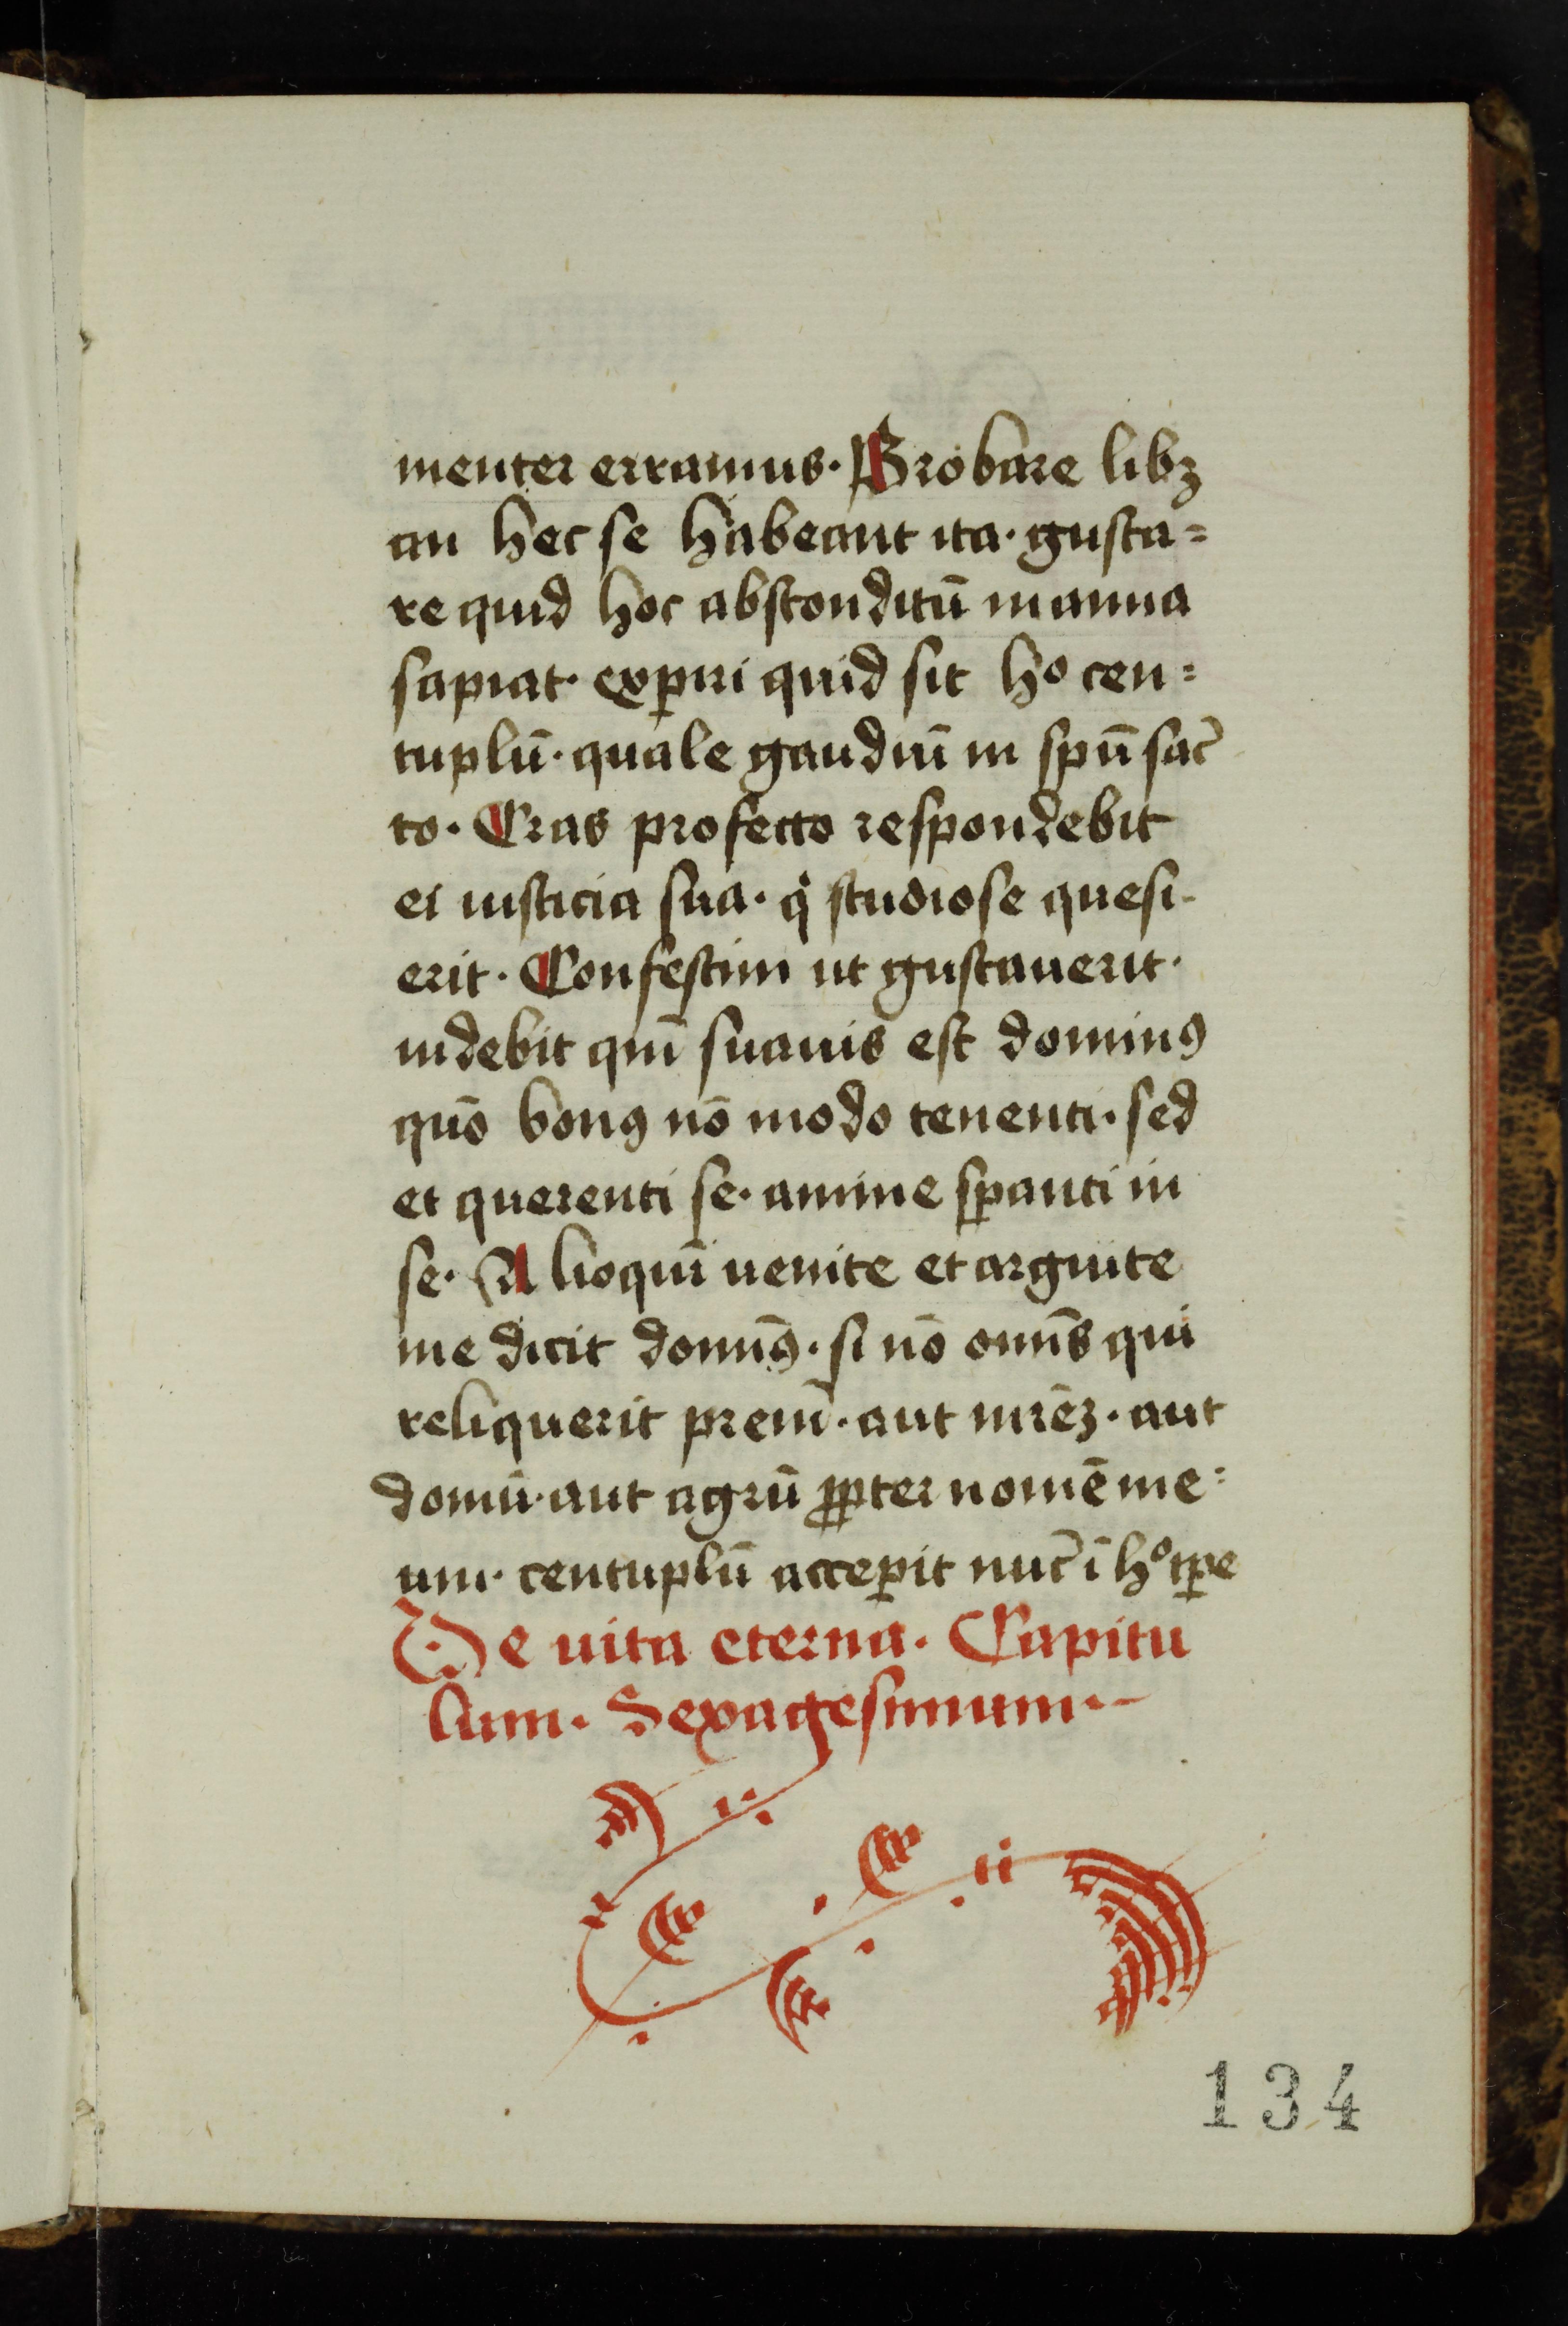 menter erramus. Probare libꝫ
an hec se habeant ita. gusta=
re quid hoc absconditū manna
sapiat. exꝑiri quid sit ho cen=
tuplū. quale gaudiū in spū sāc
to. Cras profecto respondebit
ei iusticia sua. q̇ studiose quesi-
erit. Confestim ut gustauerit.
uidebit qm̄ suauis est dominꝰ
quō bonꝰ nō modo tenenti. sed
et querenti se. anime sꝑanti in
se. Alioquī uenite et arguite
me dicit domīꝰ. si nō omīs qui
reliquerit prem̄. aut mr̄eꝫ. aut
domū. aut agrū ꝓpter nomē me=
um. centuplū acceꝑit nūc ī hº tꝑe
De uita eterna. Capitu
lum. Sexagesimum.-
134